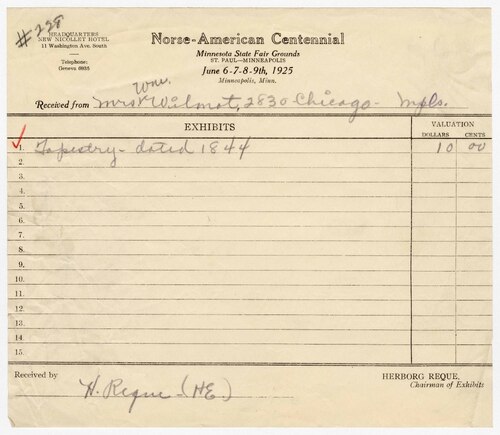 #228
HEADQUARTERS
NEW NICOLLET HOTEL
11 Washington Ave. South
Telephone:
Geneva 6835
Norse-American Centennial
Minnesota State Fair Grounds
ST. PAUL—MINNEAPOLIS
June 6-7-8-9th, 1925
Minneapolis, Minn.
Wm.
Received from Mrs. Wilmot, 2830 Chicago - Mpls.
EXHIBITS
VALUATION
DOLLARS CENTS
1. Tapestry - dated 1844 10 00
2.
3.
4.
5.
6.
7.
8.
9.
10.
11.
12.
13.
14.
15.
Received by
H. Reque - (HE)
HERBORG REQUE.
Chairman of Exhibits